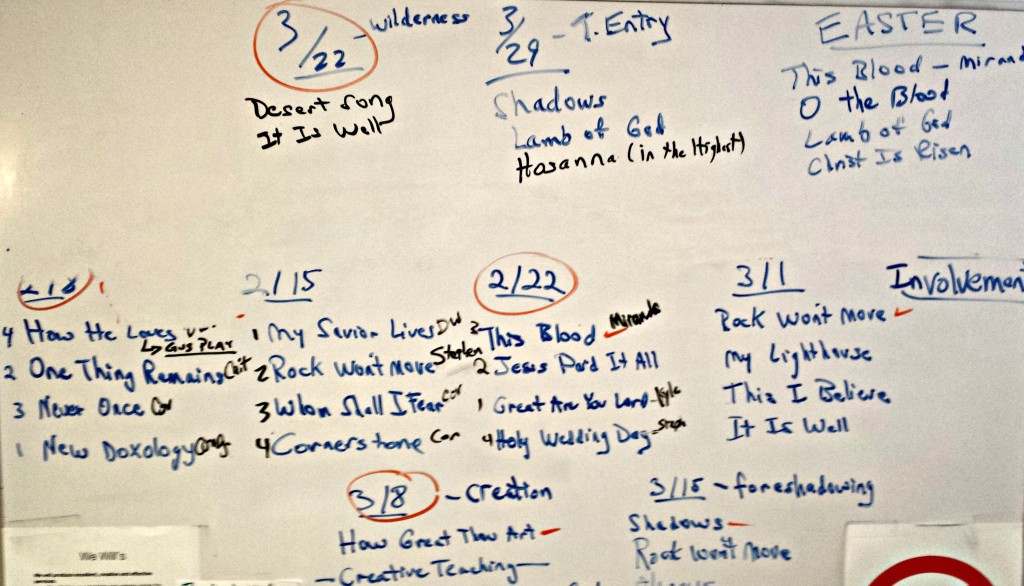 3/22 - wilderness
Desert Song
It Is Well
3/29 - T. Entry
Shadows
Lamb of God
Hosanna (in the Highest)
EASTER
This Blood - Miran
O the Blood
Lamb of God
Christ Is Risen
4 How He Loves
↳ Gus PLAY
2 One Thing Remains Cait
3 Never Once Cor
1 New Doxology
2/15
1 My Savior Lives DW
2 Rock Won't Move Stephen
3 Whom Shall I Fear Cor
4 Cornerstone Cor
2/22
3 This Blood Miranda
2 Jesus Paid It All
1 Great Are You Lord - Kyle
4 Holy Wedding Day - Steph
3/1
Rock Won't Move
My Lighthouse
This I Believe
It Is Well
Involvemen
3/8 - Creation
How Great Thou Art -
- Creative Teaching -
3/15 - foreshadowing
Shadows -
Rock Won't Move
We Will's